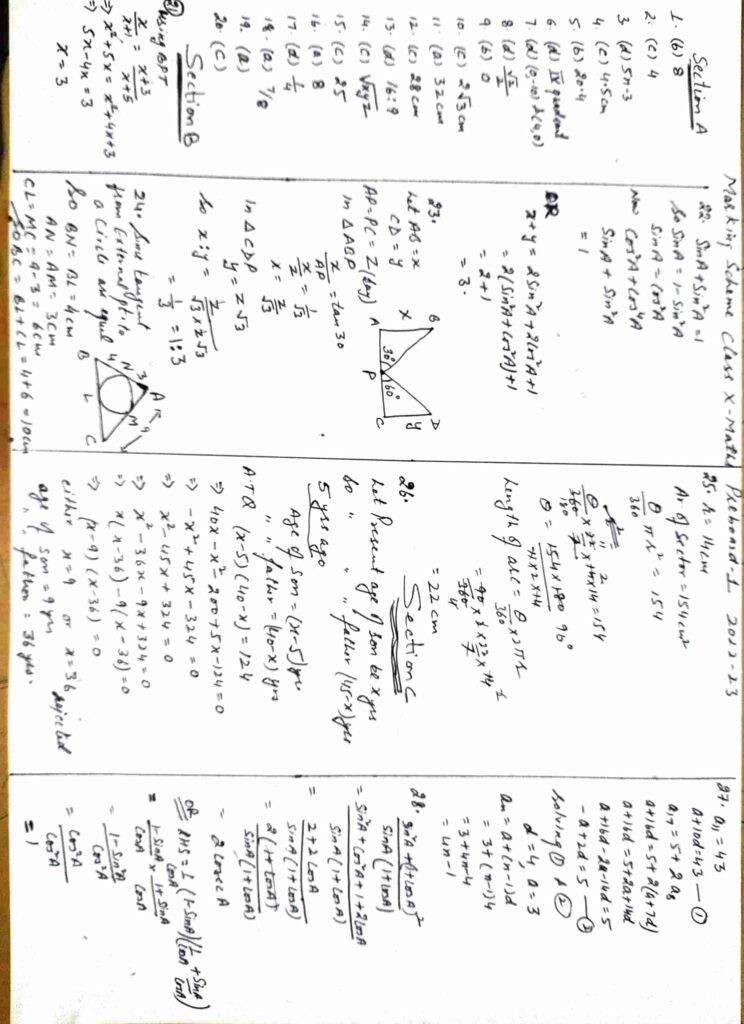 Marking Scheme Class X-Maths Preboard-1 2022-23
Section A
1. (b) 8
2. (c) 4
3. (d) 5n-3
4. (c) 4.5cm
5. (b) 20.4
6. (d) IV quadrant
7. (d) (0,-10) & (4,0)
8. (d) √3/2
9. (b) 0
10. (c) 2√3 cm
11. (a) 32 cm
12. (c) 28cm
13. (d) 16:9
14. (c) √xyz
15. (c) 25
16. (a) 8
17. (d) 1/4
18. (a) 7/8
19. (a)
20. (c)
Section B
21 Using BPT
x/x+1 = x+3/x+5
⇒ x²+5x = x²+4x+3
⇒ 5x-4x = 3
x = 3
22. SinA+Sin²A=1
So SinA = 1-Sin²A
SinA = Cos²A
Now Cos²A+Cos⁴A
SinA + Sin²A
= 1
OR
x+y = 2Sin²A+2Cos²A+1
= 2(Sin²A+Cos²A)+1
= 2+1
= 3.
23.
Let AB = x
CD = y
AP=PC=Z (say)
In ΔABP
x/AP = tan30
x/z = 1/√3
x = z/√3
In ΔCDP
y = z√3
So x:y = z/√3×z√3
= 1/3 = 1:3
B
D
x
y
30°
60°
A
P
C
24. Since tangent
from External pt. to
a Circle are equal
So BN = BL = 4cm
AN = AM = 3cm
CL = MC = 9-3 = 6cm
So BC = BL+CL = 4+6 = 10cm
A
3
N
M
9
4
B
L
C
25. r = 14cm
Ar. of Sector = 154cm²
θ/360 πr² = 154
θ/360 × 22/7 × 14×14 = 154
θ = 154×180/11×2×14 90°
Length of arc = θ/360 × 2πr
= 90/360 × 2×22/7×14
= 22 cm
Section C
26.
Let Present age of Son be x yrs
So " " " father (45-x) yrs
5 yrs ago
Age of Son = (x-5) yrs
" " father = (40-x) yrs
A.T.Q (x-5)(40-x) = 124
⇒ 40x-x²-200+5x-124=0
⇒ -x²+45x-324=0
⇒ x²-45x+324=0
⇒ x²-36x-9x+324=0
⇒ x(x-36)-9(x-36)=0
⇒ (x-9)(x-36)=0
either x=9 or x=36 rejected
age of son = 9 yrs
" " father = 36 yrs.
27. a₁₁ = 43
a+10d=43 — ①
a₁₇ = 5+2a₈
a+16d = 5+2(a+7d)
a+16d = 5+2a+14d
a+16d-2a-14d=5
-a+2d=5 — ②
Solving ① & ②
d=4, a=3
an = a+(n-1)d
= 3+(n-1)4
= 3+4n-4
= 4n-1
28. Sin²A+(1+CosA)²/SinA(1+CosA)
= Sin²A+Cos²A+1+2CosA/SinA(1+CosA)
= 2+2CosA/SinA(1+CosA)
= 2(1+CosA)/SinA(1+CosA)
= 2CosecA
OR
= 1-SinA/CosA × 1+SinA/CosA
= 1-Sin²A/Cos²A
= Cos²A/Cos²A
= 1